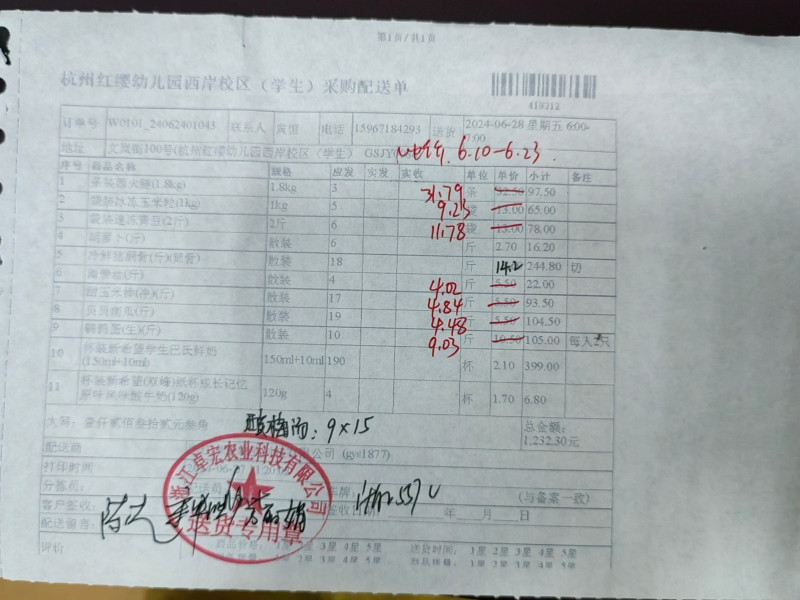 第1页/共1页
杭州红缨幼儿园西岸校区（学生）采购配送单
418312
订单号 W0101_24062401043 联系人 黄组 电话 15967184293 送货 2024-06-28 星期五 6:00-7:00
地址 文岚街100号(杭州红缨幼儿园西岸校区（学生） GSJY 6.10-6.23
序号 商品名称 规格 应发 实发 实收 单位 单价 小计 备注
1 茶装圆火腿(1.8kg) 1.8kg 3 31.79 条 32.50 97.50
2 袋装冰冻玉米粒(1kg) 1kg 5 9.25 袋 13.00 65.00
3 袋装速冻青豆(2斤) 2斤 6 11.78 袋 13.00 78.00
4 胡萝卜(斤) 散装 6 斤 2.70 16.20
5 冷鲜猪胴骨(斤)(筒骨) 散装 18 斤 14.2 244.80 切
6 散装 4 4.02 斤 5.50 22.00
7 甜玉米棒(净)(斤) 散装 17 4.84 斤 5.50 93.50
8 贝贝南瓜(斤) 散装 19 4.48 斤 5.50 104.50
9 鹌鹑蛋(生)(斤) 散装 10 9.03 斤 10.50 105.00 每人2只
10 杯装新希望学生巴氏鲜奶(150ml+10ml) 150ml+10ml 190 杯 2.10 399.00
11 杯装新希望(双峰)纸杯成长记忆原味风味酸牛奶(120g) 120g 4 杯 1.70 6.80
大写：壹仟贰佰叁拾贰元叁角 酸梅汤：9×15 总金额：1,232.30元
配送商 限公司 (gys1877)
打印时间
分拣员： 配送员 车牌： (与备案一致)
客户签收： 签收日期 年 月 日
配送留言：
浙江卓宏农业科技有限公司
送货专用章
评价 商品价格： 1星 2星 3星 4星 5星 送货时间： 1星 2星 3星 4星 5星
商品质量： 1星 2星 3星 4星 5星 1星 2星 3星 4星 5星